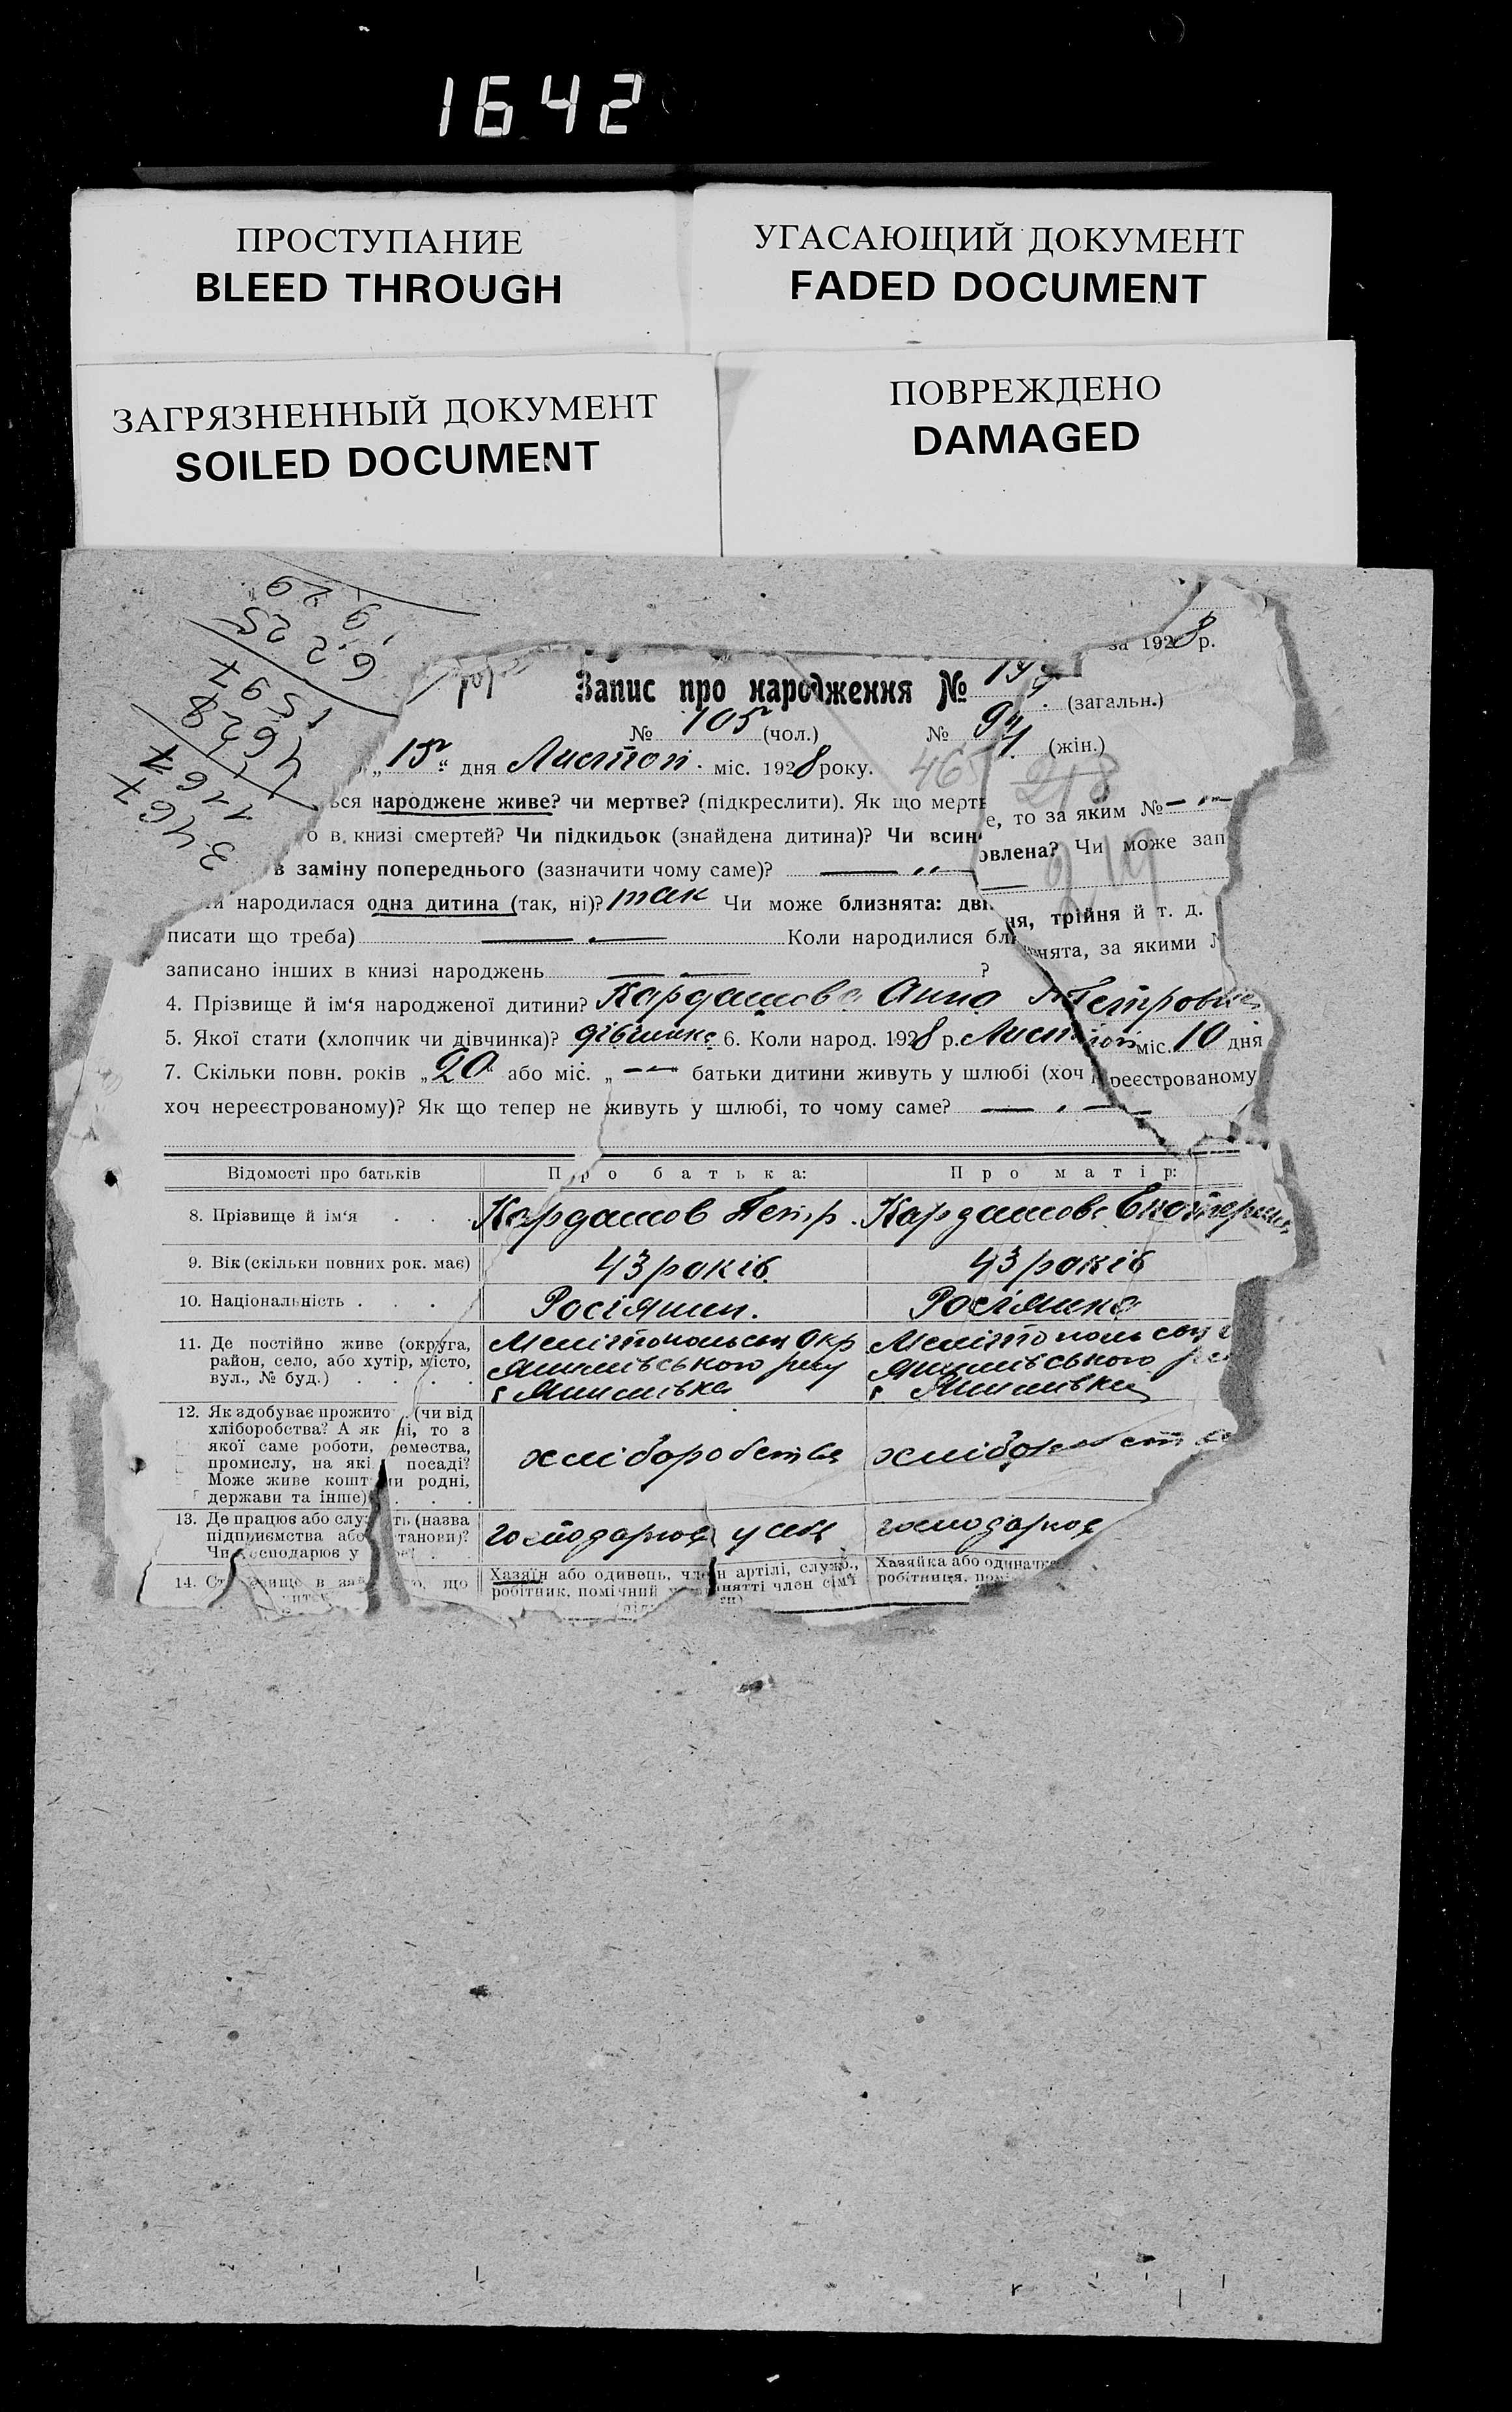 1642
ПРОСТУПАНИЕ
BLEED THROUGH
УГАСАЮЩИЙ ДОКУМЕНТ
FADED DOCUMENT
ЗАГРЯЗНЕННЫЙ ДОКУМЕНТ
SOILED DOCUMENT
ПОВРЕЖДЕНО
DAMAGED
за 1928 р.
Запис про народження № (загальн.)
№ 105 (чол.) № (жін.)
„15“ дня Листоп. міс. 1928 року. 465 218
ься народжене живе? чи мертве? (підкреслити). Як що мертве, то за яким №
о в книзі смертей? Чи підкидьок (знайдена дитина)? Чи всиновлена? Чи може зап
в заміну попереднього (зазначити чому саме)? 219
народилася одна дитина (так, ні)? так Чи може близнята: двійня, трійня й т. д.
писати що треба) Коли народилися близнята, за якими
записано інших в книзі народжень ?
4. Прізвище й ім'я народженої дитини? Кардашова Анна Петровна
5. Якої стати (хлопчик чи дівчинка)? дівчинка 6. Коли народ. 1928 р. Листоп міс. 10 дня
7. Скільки повн. років „20“ або міс. „ батьки дитини живуть у шлюбі (хоч реєстрованому
хоч нереєстрованому)? Як що тепер не живуть у шлюбі, то чому саме?
Відомості про батьків Про батька: Про матір:
8. Прізвище й ім'я . . Кардашов Петр. Кардашова Екатерина
9. Вік (скільки повних рок. має) 43 років 43 років
10. Національність . . . Росіянин. Росіянка
11. Де постійно живе (округа,
район, село, або хутір, місто,
вул., № буд.) . . . .
Мелітопольськ Окр
Якимівського рну
с Якимівка
Якимівського
с Якимівка
12. Як здобуває прожиток (чи від
хліборобства? А як ні, то з
якої саме роботи, ремества,
промислу, на які посаді?
Може живе коштами родні,
держави та інше) . . .
хліборобства
13. Де працює або служить (назва
підприємства або установи)?
Чи господарює у
господарює у себе господарює
14. в що
Хазяїн або одинець, член артілі, служб.,
робітник, помічний занятті член сім'ї
Хазяйка або одиначка
робітниця,